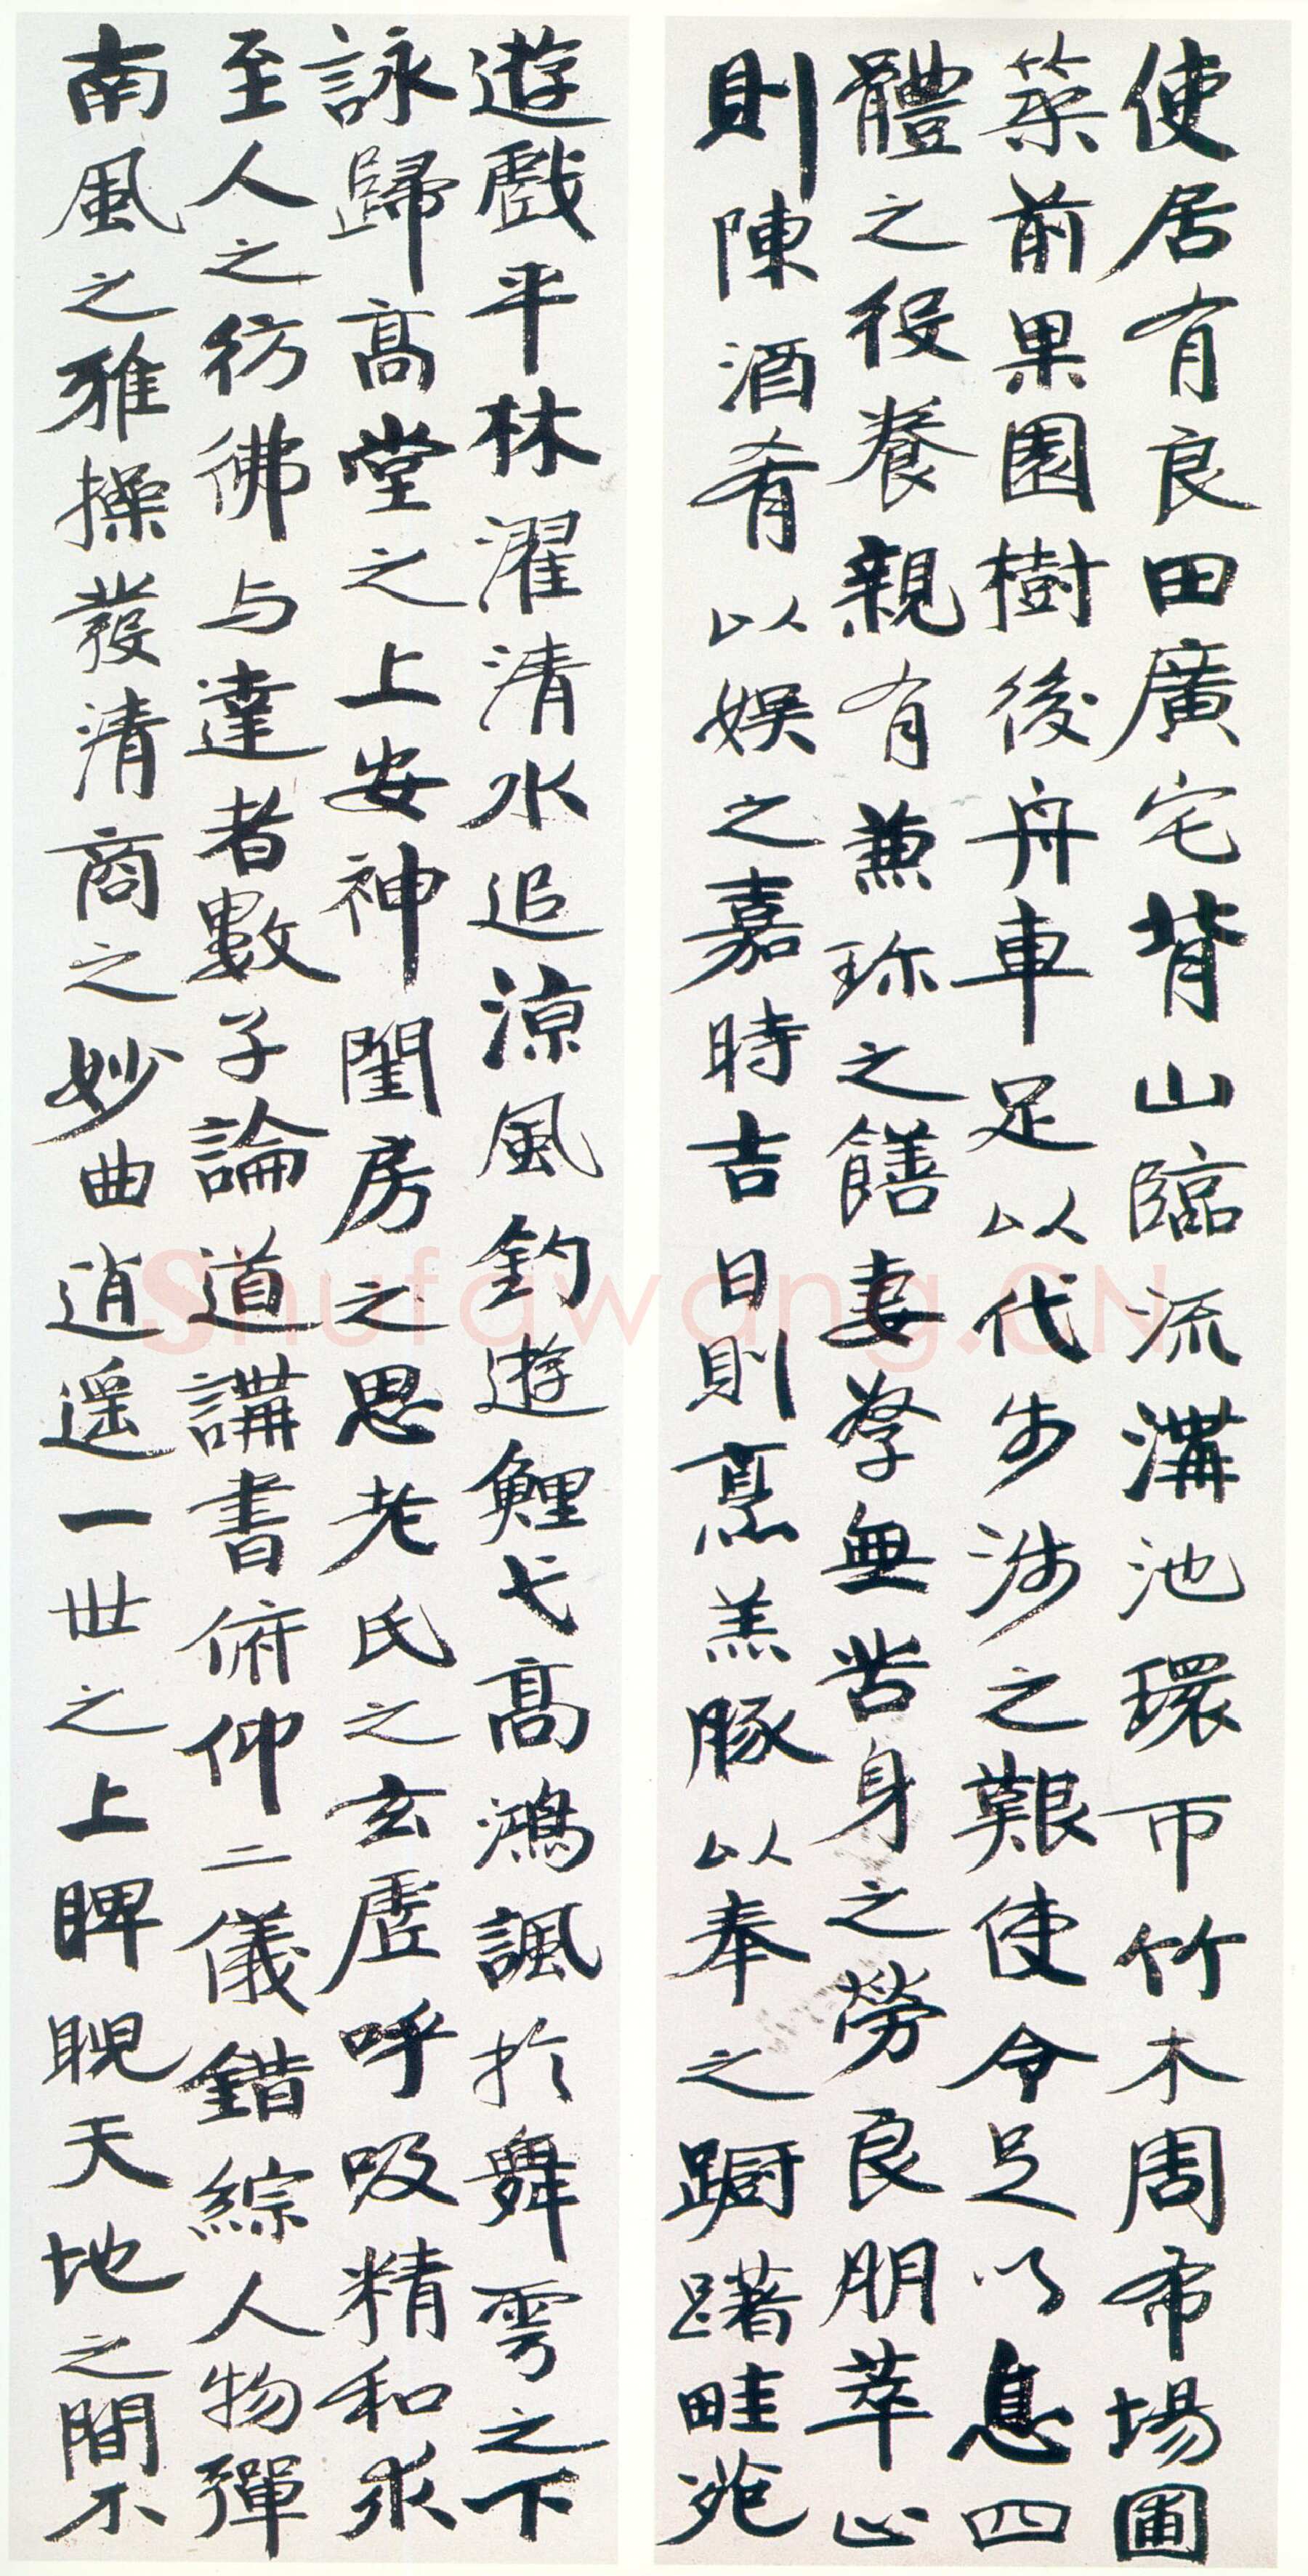 使居有良田廣宅背山臨流溝池環帀竹木周布場圃
築前果園樹後舟車足以代步涉之艱使令足以息四
體之役養親有兼珎之饍妻孥無苦身之勞良朋萃止
則陳酒肴以娛之嘉時吉日則烹羔豚以奉之躕躇畦苑
遊戲平林濯清水追涼風釣遊鯉弋高鴻諷於舞雩之下
詠歸高堂之上安神閨房之思老氏之玄虛呼吸精和求
至人之彷彿与達者數子論道講書俯仰二儀錯綜人物彈
南風之雅操發清商之妙曲逍遥一世之上睥睨天地之間不
Shufawang.CN